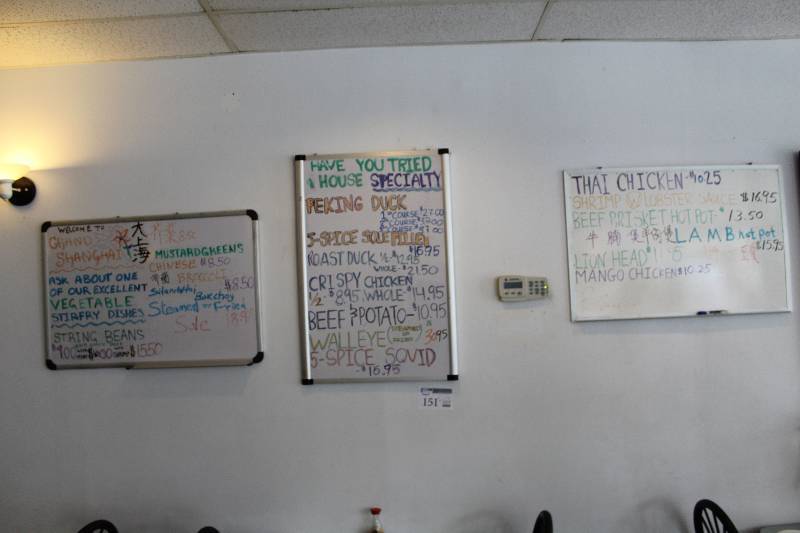 WELCOME TO
GRAND
SHANGHAI
大
上
海
ASK ABOUT ONE
OF OUR EXCELLENT
VEGETABLE
STIRFRY DISHES
STRING BEANS
MUSTARDGREENS
CHINESE $8.50
BROCCOLI
$8.50
Bokchoy
Steamed or Fried
HAVE YOU TRIED
HOUSE SPECIALTY
PEKING DUCK
1 COURSE $27.00
2 COURSE
3 COURSE
5-SPICE SOLE FILLET
$16.95
ROAST DUCK ½-$12.95
WHOLE-$21.50
CRISPY CHICKEN
½-$8.95 WHOLE-$14.95
BEEF POTATO-$10.95
WALLEYE
5-SPICE SQUID
-$15.95
151
THAI CHICKEN-$10.25
SHRIMP W/LOBSTER SAUCE $16.95
BEEF BRISKET HOT POT-$13.50
牛腩煲
LAMB hot pot
$15.95
LION HEAD
MANGO CHICKEN $10.25